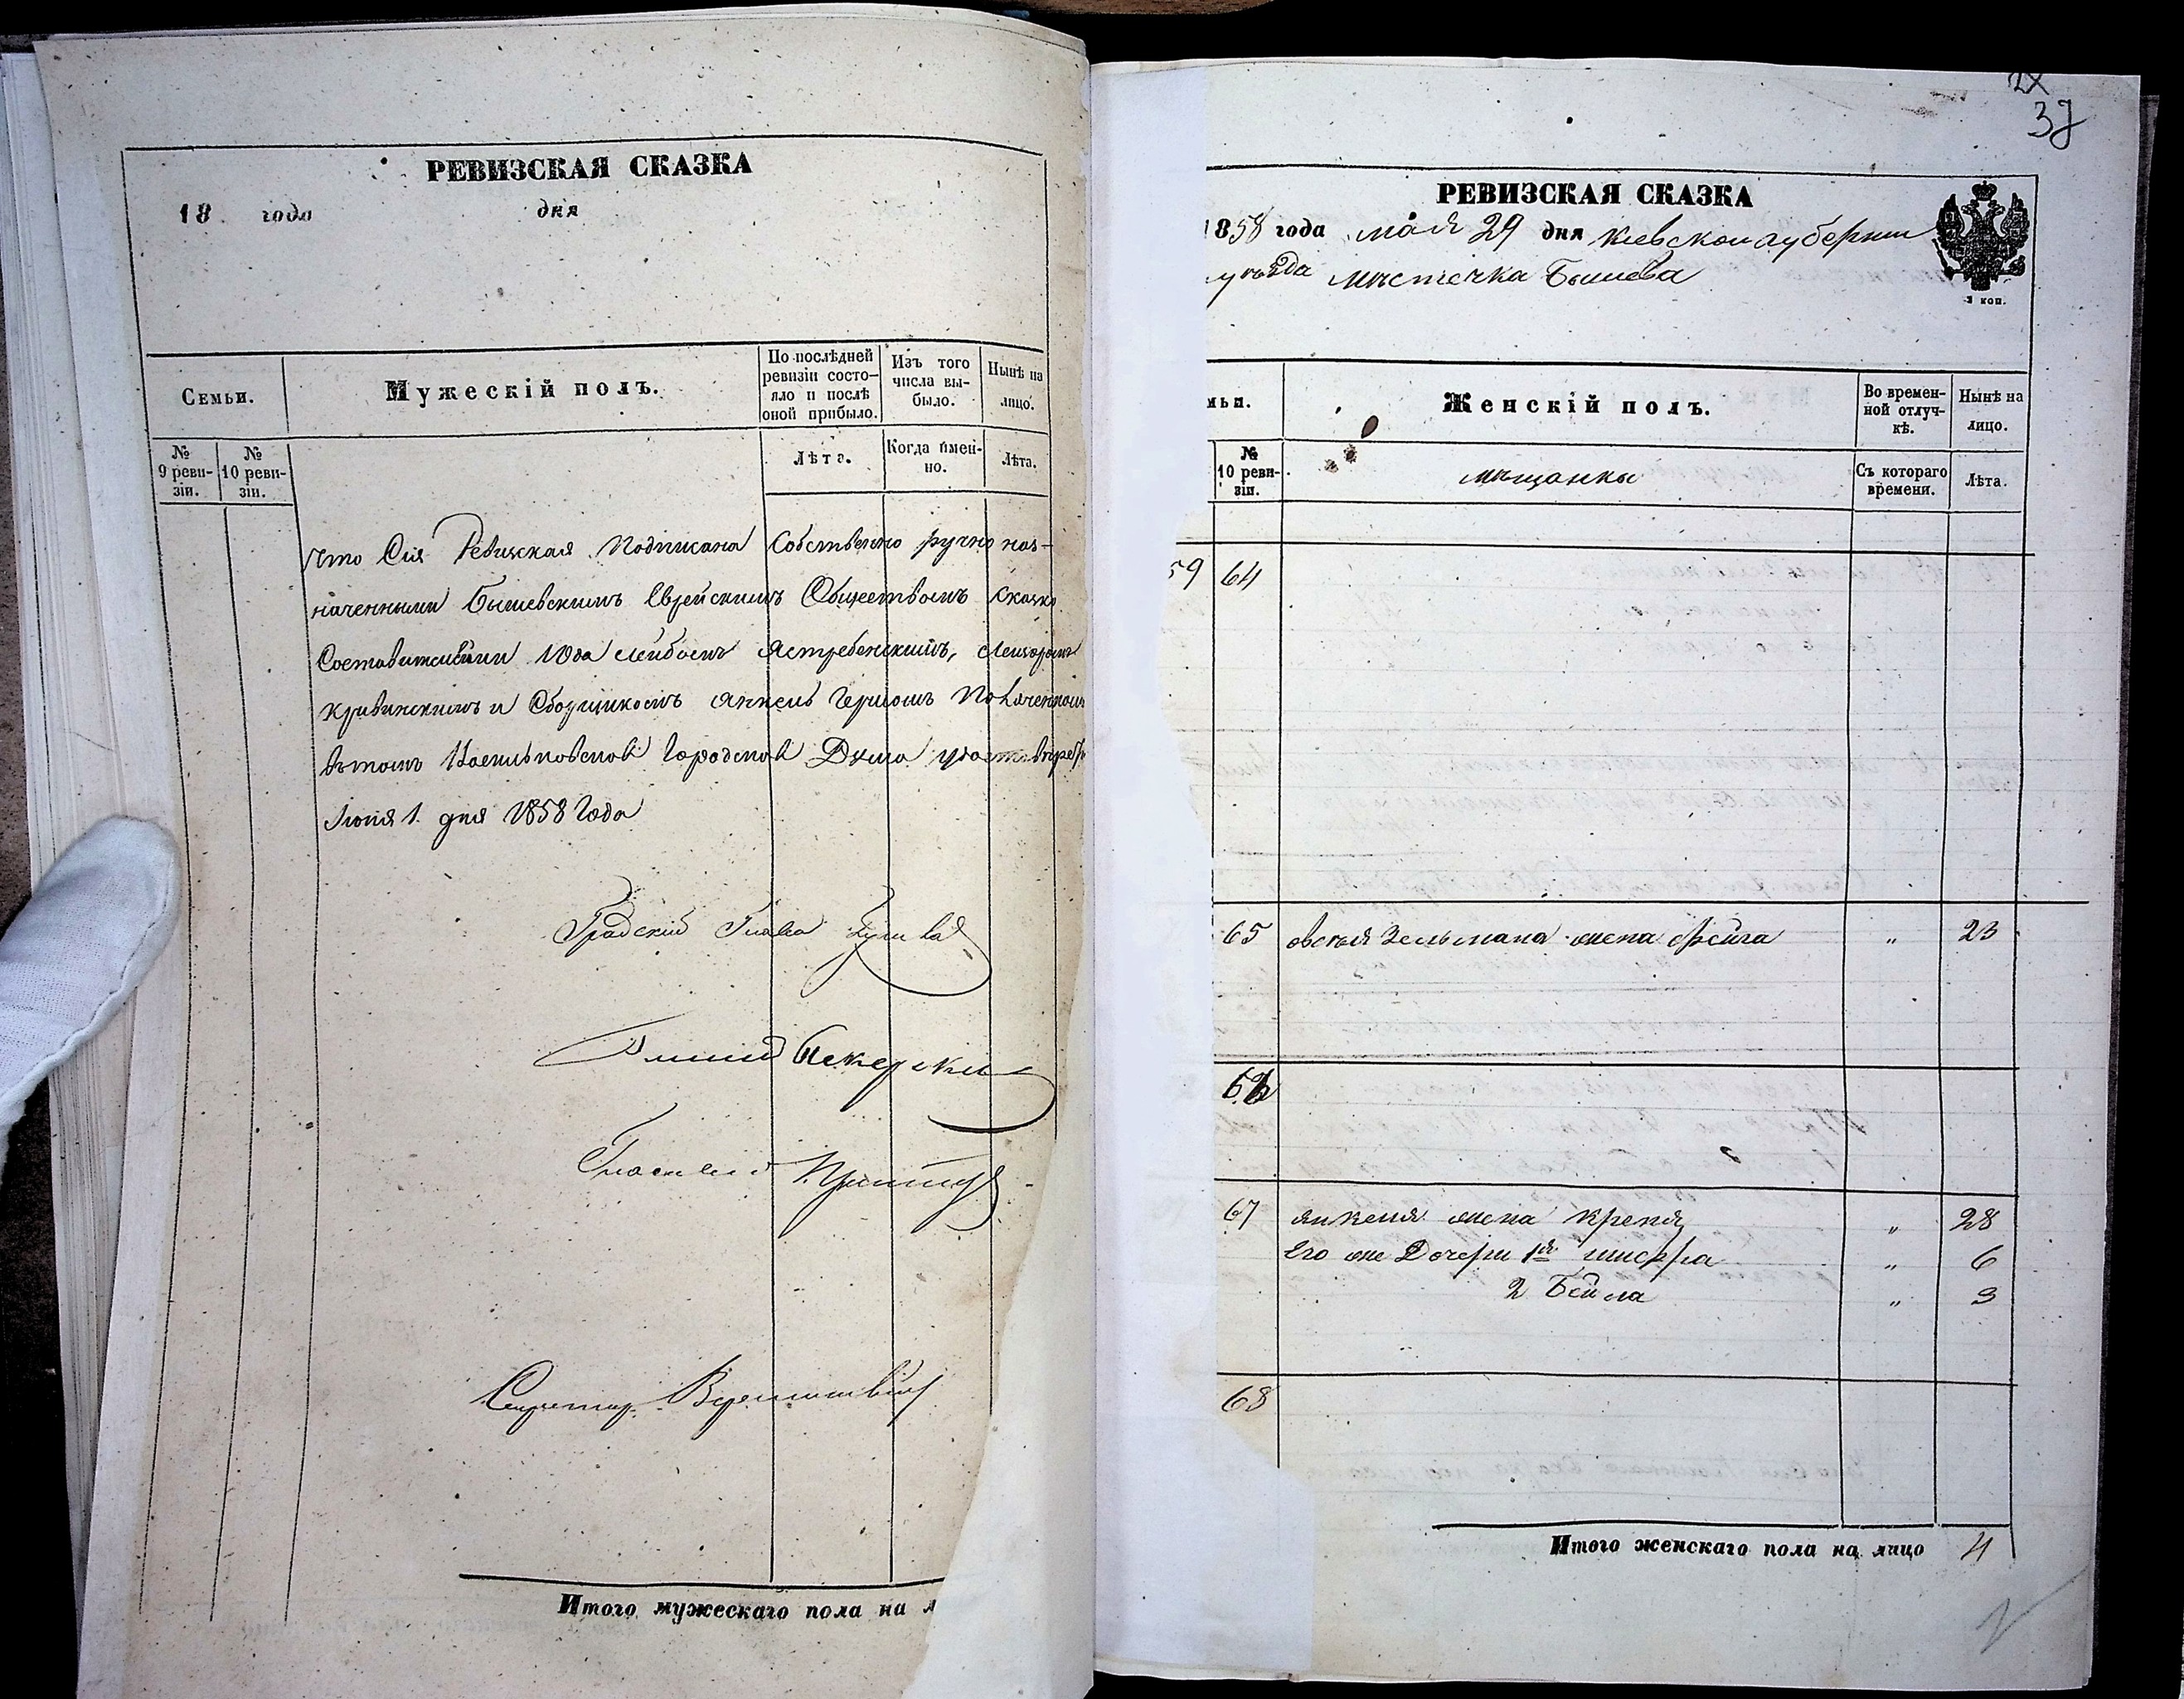 РЕВИЗСКАЯ СКАЗКА
18 года дня
Семьи.
Мужескій полъ.
По послѣдней ревизіи состо-яло и послѣ оной прибыло.
Изъ того числа вы-было.
Нынѣ на лицо.
№ 9 реви-зіи.
№ 10 реви-зіи.
Лѣта.
Когда имен-но.
Лѣта.
Что Сія Ревизская Подписана Собственно ручно наз-
наченными Бышевскимъ Еврейскимъ Обществомъ Сказко
Составителями Юда Лейбомъ Ястребенскимъ,
Кривинскимъ и Сборщикомъ Янкель Гершомъ
въ томъ Васильковской Городской Дума
Іюня 1. дня 1858 Года
Градскій Глава
Гласный
Гласный
Секретарь
Итого мужескаго пола на л
37
РЕВИЗСКАЯ СКАЗКА
1858 года мая 29 дня Кіевской губерніи
уѣзда мѣстечка Бышева
1 коп.
мьи.
Женскій полъ.
Во времен-ной отлуч-кѣ.
Нынѣ на лицо.
№ 10 реви-зіи.
мѣщанки
Съ котораго времени.
Лѣта.
59 64
65 Зельмана жена Фейга " 23
67 Янкеля жена Крейня " 28
Его же Дочери 1я " 6
2 Бейла " 3
68
Итого женскаго пола на лицо 4